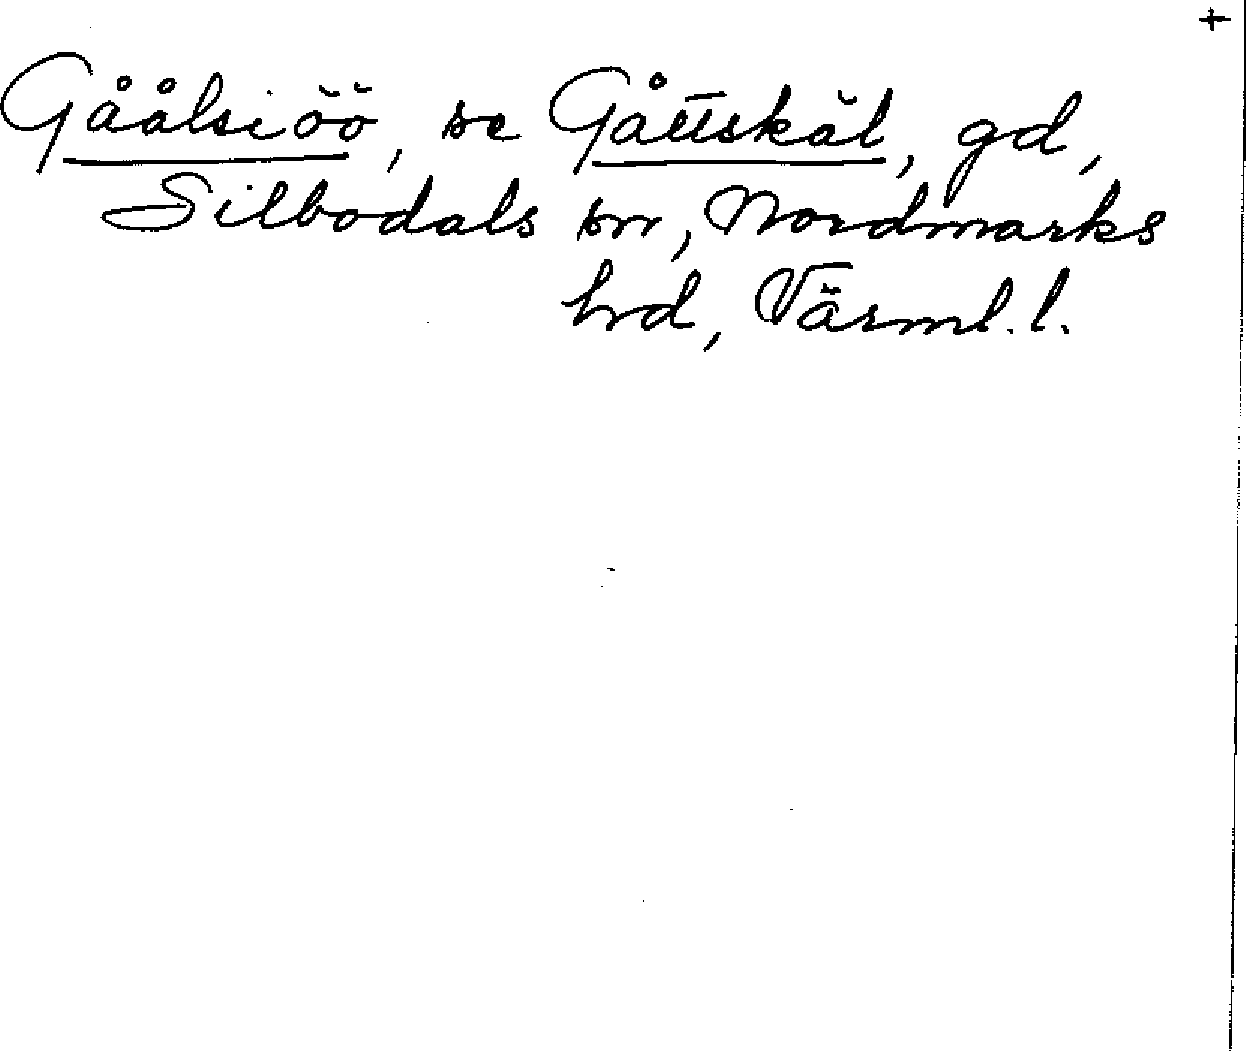 +
Gåålsiöö, se Gåttskäl, gd,
Silbodals sn, Nordmarks
hd, Värml. l.